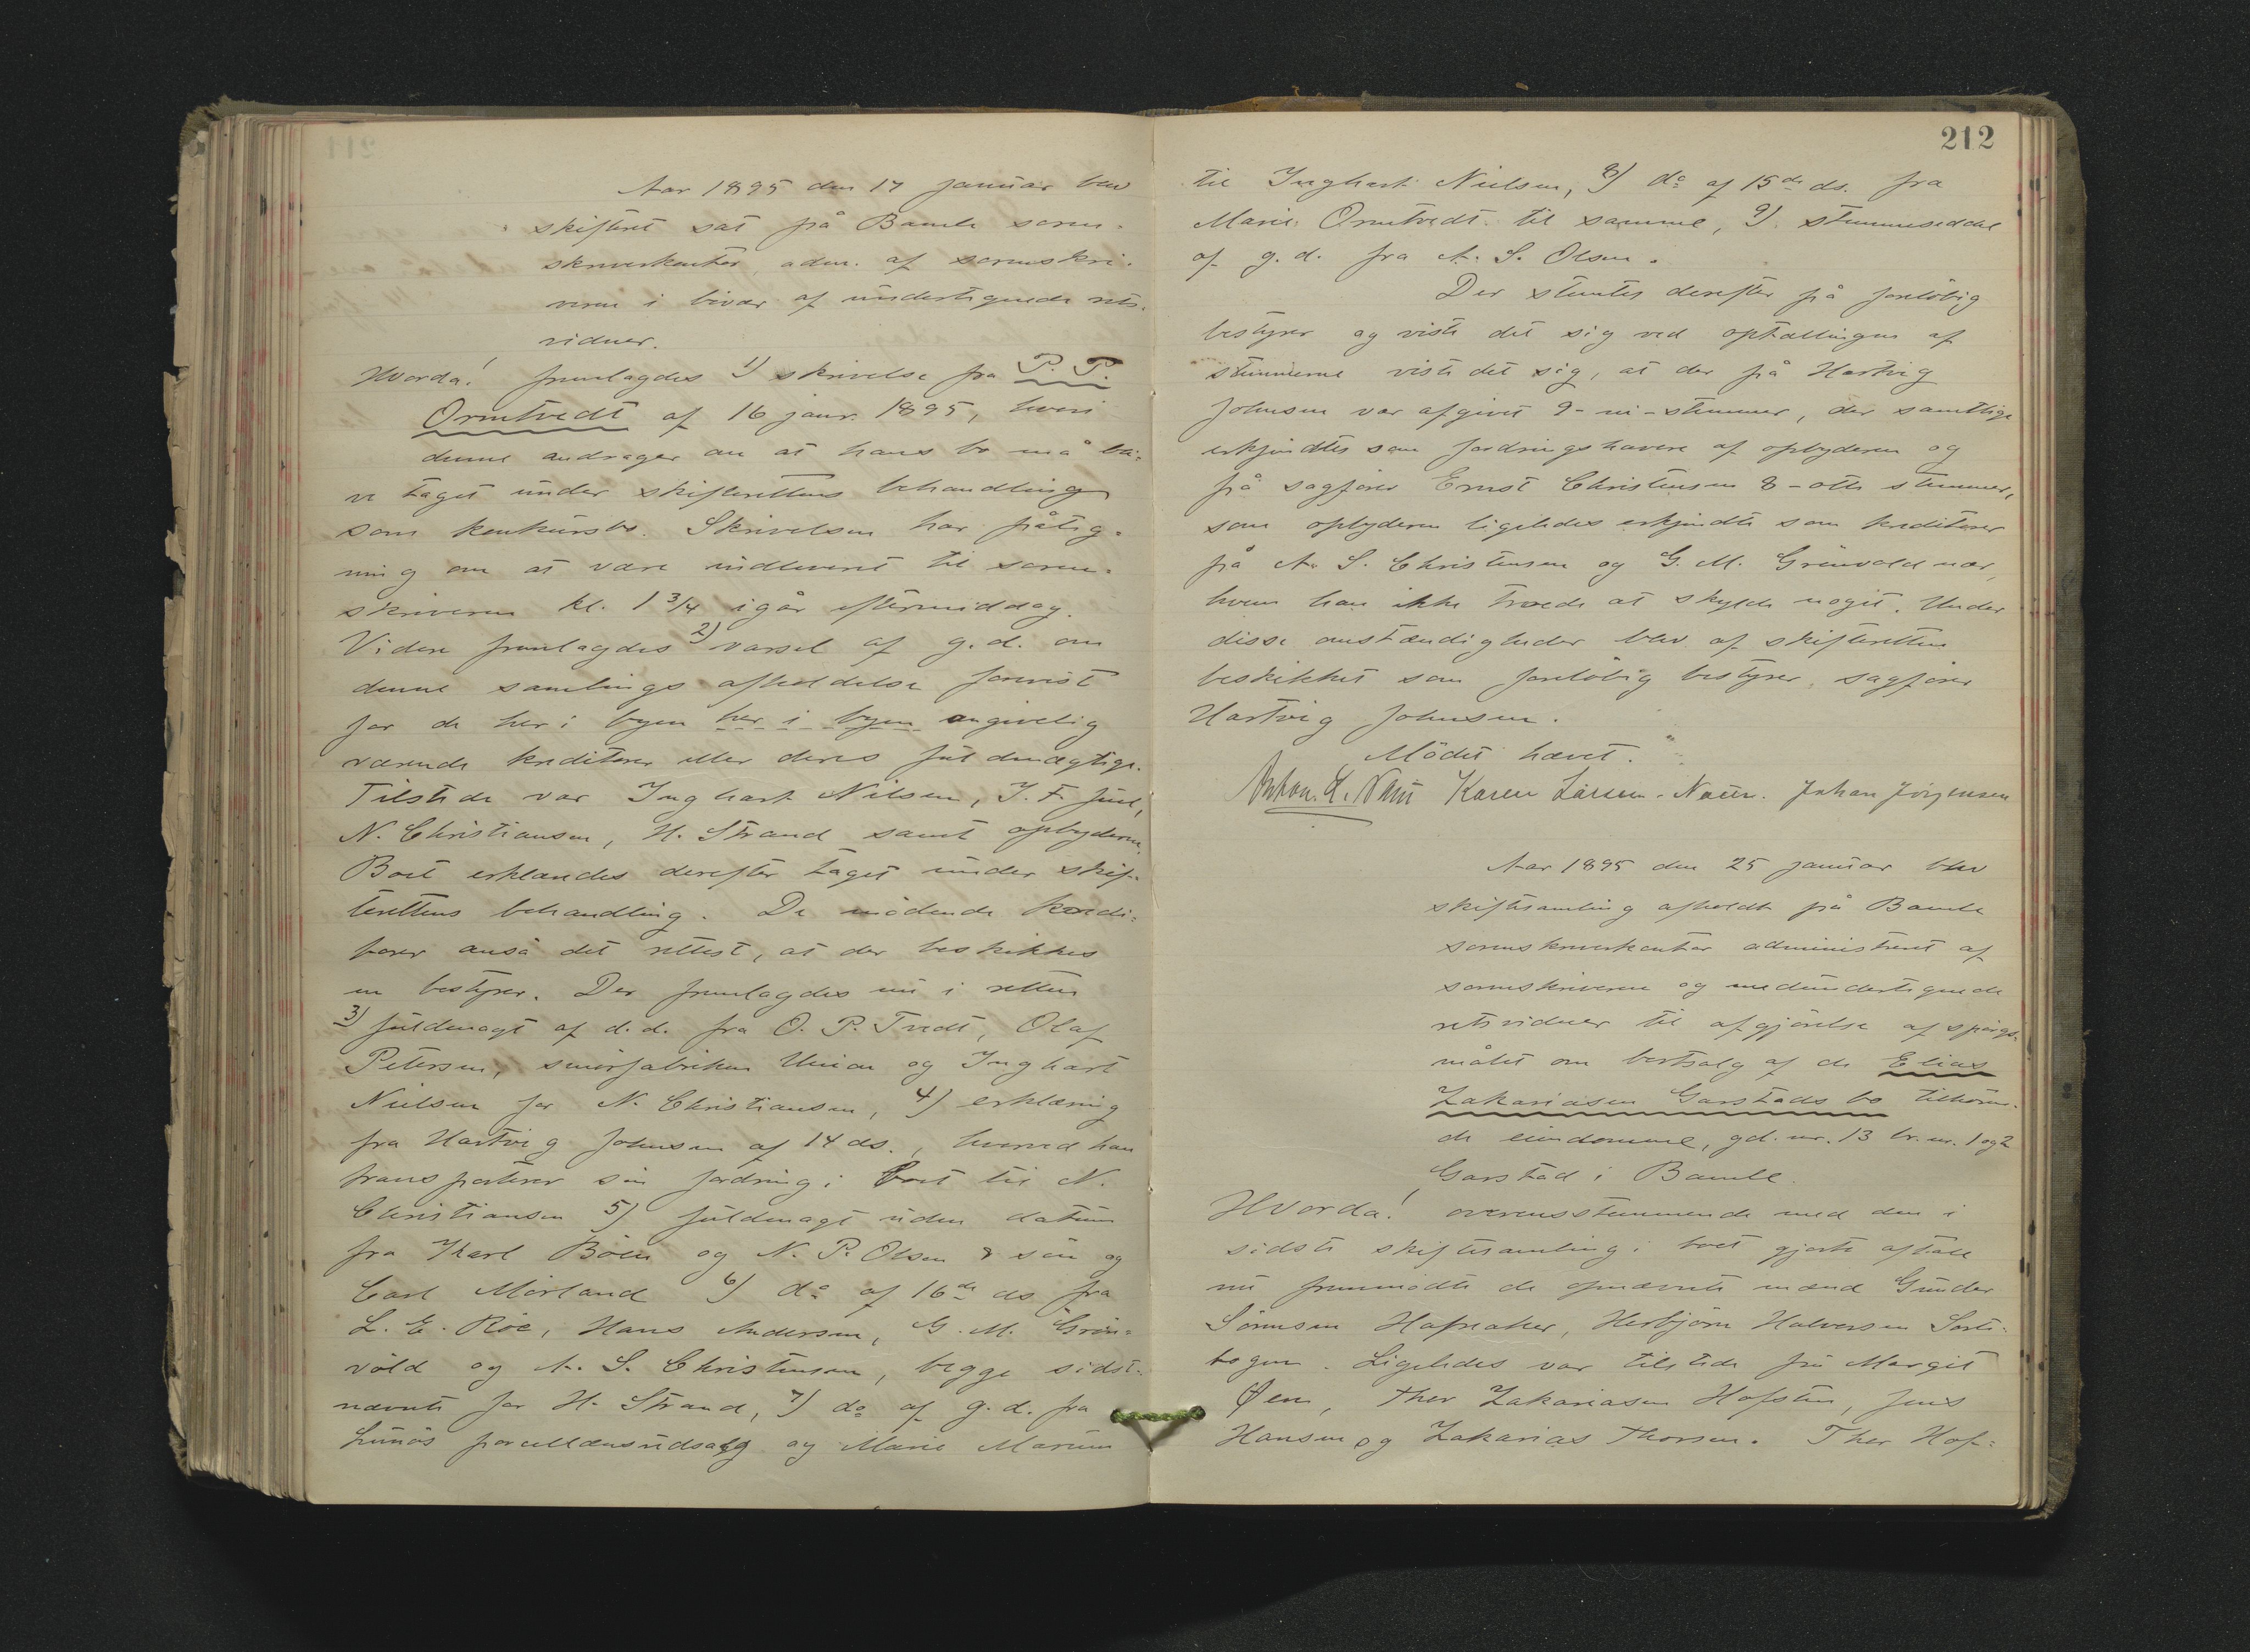 Aar 1895 den 17 januar blev
skifteret sat på Bamle soren-
skriverkontor, adm. af sorenskri-
veren i bivær af undertegnede rets-
vidner.
Hvorda! fremlagdes 1) skrivelse fra P. P.
Ormtvedt af 16 janr. 1895, hvori
denne andrager om at hans bo må bli-
ve taget under skifterettens behandling
som konkursbo. Skrivelsen har påteg-
ning om at være indleveret til soren-
skriveren kl. 1 3/4 igår eftermiddag.
Videre fremlagdes 2) varsel af g. d. om
denne samlings afholdelse forevist
for de her i byen her i byen angivelig
værende kreditorer eller deres fuldmægtige.
Tilstede var Inghart Nilsen, J. F. Juul,
N. Christiansen, H. Strand samt opbyderen.
Boet erklæredes derefter taget under skif-
terettens behandling. De mødende kredi-
torer anså det rettest, at der beskikkes
en bestyrer. Der fremlagdes nu i retten
3) fuldmagt af d. d. fra O. P. Tvedt, Olaf
Petersen, smørfabriken Union og Inghart
Nielsen for N. Christiansen, 4) erklæring
fra Hartvig Johnsen af 14 ds., hvorved han
transporterer sin fordring i boet til N.
Christiansen 5) fuldmagt uden datum
fra Karl Böen og N. P. Olsen & sön og
Carl Mörland 6) do af 16de ds fra
L. E. Röe, Hans Andersen, G. M. Grön-
vold og A. S. Christensen, begge sidst-
nævnte for H. Strand, 7) do af g. d. fra
porcellænsudsalg og Marie
212
til Inghart Nielsen, 8) do af 15de ds. fra
Marie Ormtvedt til samme, 9) stemmeseddel
af g. d. fra A. S. Olsen.
Der stemtes derefter på foreløbig
bestyrer og viste det sig ved optællingen af
stemmerne viste det sig, at der på Hartvig
Johnsen var afgivet 9-ni-stemmer, der samtlige
erkjendtes som fordringshavere af opbyderen og
på sagfører Ernst Christensen 8-otte stemmer,
som opbyderen ligeledes erkjendte som kreditorer
på A. S. Christensen og G. M. Grünvold nær,
hvem han ikke troede at skylde noget. Under
disse omstændigheder blev af skifteretten
beskikket som foreløbig bestyrer, sagfører
Hartvig Johnsen.
Mödet hævet.
Karen Larsen. Johan Jörgensen
Aar 1895 den 25 januar blev
skiftesamling afholdt på Bamle
sorenskriverkontor administreret af
sorenskriveren og medundertegnede
retsvidner til afgjörelse af spörgs-
målet om bortsalg af de Elias
Zakariasen Garstads bo tilhören-
de eiendomme, gd. nr. 13 br. nr. 1 og 2
Garstad i Bamle.
Hvorda! overensstemmende med den i
sidste skiftesamling i boet gjorte aftale
nu fremmödte de opnævnte mænd Gunder
Sörensen Hafsaker, Herbjörn Halvorsen
Ligeledes var tilstede fru Margit
Öen, Thor Zakariasen Hofsten, Jens
Hansen og Zakarias Thorsen. Thor Hof-